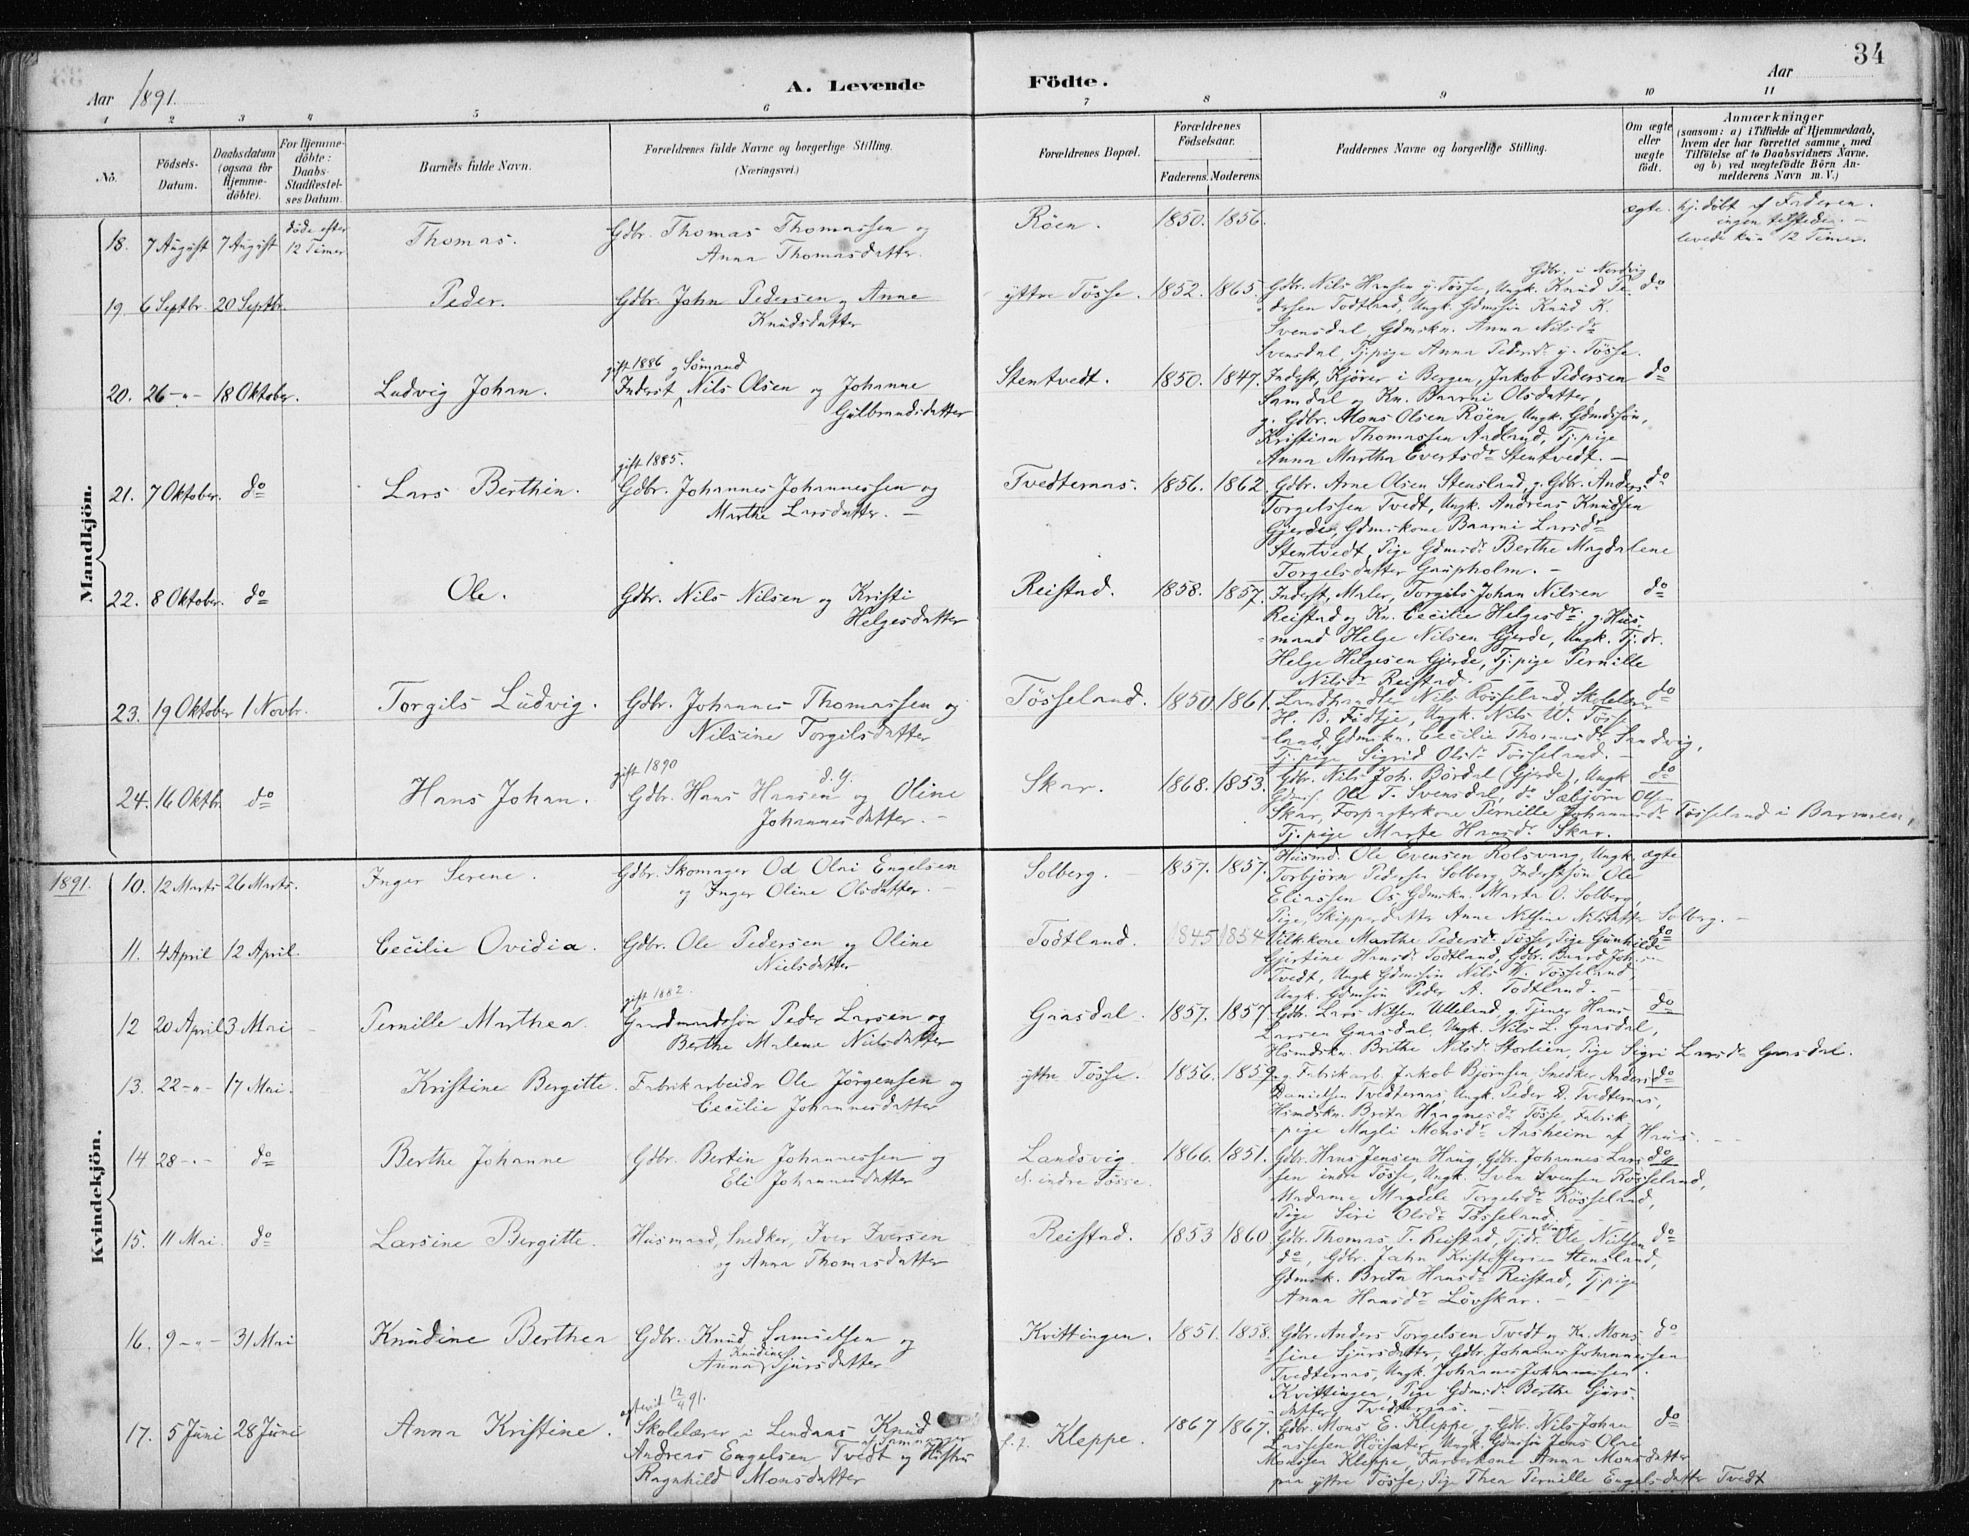 34
Aar 1891.
A. Levende Födte.
Aar
1 2 3 4 5 6 7 8 9 10 11
No.
Födsels-Datum.
Daabsdatum (ogsaa for Hjemme-döbte).
For Hjemme-döbte: Daabs-Stadfæstel-ses Datum.
Barnets fulde Navn.
Forældrenes fulde Navne og borgerlige Stilling.
(Næringsvei.)
Forældrenes Bopæl.
Forældrenes Födselsaar.
Faderens. Moderens.
Faddernes Navne og borgerlige Stilling.
Om ægte eller uægte födt.
Anmærkninger
(saasom: a) i Tilfælde af Hjemmedaab,
hvem der har forrettet samme, med
Tilföielse af to Daabsvidners Navne.
og b) ved uægtefödte Börn An-
melderens Navn m. V.)
Mandkjön.
18. 7 August 7 August döde efter 12 Timer Thomas. Gdbr. Thomas Thomassen og
Anna Thomasdatter.
Röen. 1850. 1856. ægte. hj. döbt af Faderen.
ingen tilstede. –
levede kun 12 Timer.
19. 6 Septbr. 20 Septbr. Peder. Gdbr. John Pedersen og Anne
Knudsdatter
yttre Tösse. 1852. 1865. Gdbr. i Nordvig
Gdbr. Nils Hansen y. Tösse, Ungk. Knud Pe- do
dersen Todtland, Ungk. Gdmsön Knud K.
Svensdal, Gdmskn. Anna Nilsdr
Svensdal, Tj.pige Anna Pedersdr y. Tösse.
20. 26 –"– 18 Oktober. Ludvig Johan. gift 1886 og Sömand
Inderst Nils Olsen og Johanne
Gulbrandsdatter
Stentvedt. 1850. 1847. Inderst, Kjörer i Bergen, Jakob Pedersen do
Samdal og Kn. Baarni Olsdatter,
g. Gdbr. Mons Olsen Röen, Ungk. Gdmdssön,
Kristian Thomassen Aadland, Tj. pige
Anna Martha Evertsdr Stentvedt. –
21. 7 Oktober. do Lars Berthin. gift 1885.
Gdbr. Johannes Johannessen og
Marthe Larsdatter. –
Tvedternas. 1856. 1862. Gdbr. Arne Olsen Stensland, g. Gdbr. Anders do
Torgelssen Tvedt, Ungk. Andreas Knudsen
Gjerde, Gdmskone Baarni Larsdr
Stentvedt, Pige Gdmsdr Berthe Magdalene
Torgelsdatter Gaupholm. –
22. 8 Oktober. do Ole. Gdbr. Nils Nilsen og Kristi
Helgesdatter
Reistad. 1858. 1857. Inderst, Maler, Torgils Johan Nilsen do
Reistad og Kn. Cecilie Helgesdr, g. Hus-
mand Helge Nilsen Gjerde, Ungk. Tj.dr.
Helge Helgesen Gjerde, Tj.pige Pernille
Nilsdr Reistad. –
23. 19 Oktober 1 Novbr. Torgils Ludvig. Gdbr. Johannes Thomassen og
Nilsine Torgilsdatter
Tösseland. 1850 1861. Landhandler Nils Rösseland, Skolelærer do
H. B. Födtje, Ungk. Nils W. Tösse-
land, Gdmskn. Cecilie Thomasdr Sandvig,
Tj. pige Sigrid Olsdr Tösseland. –
24. 16 Oktbr. do Hans Johan. gift 1890 d. y.
Gdbr. Hans Hansen og Oline
Johannesdatter. –
Skar. 1868. 1853. Gdbr. Nils Joh. Bördal (Gjerde), Ungk. do
Gdmss. Ole T. Svensdal, do Sæbjörn Olsen
Skar, Forpagterkone Pernille Johannesdr Tösseland i Barmen,
Tj. pige Marte Hansdr Skar.
Kvindekjön.
1891. 10. 12 Marts 26 Marts. Inger Serene. Gdbr. Skomager Od Olai Engelsen
og Inger Oline Olsdatter. –
Solberg. 1857. 1857. Husmd. Ole Evensen Rolsvaag, Ungk. ægte
Torbjörn Pedersen Solberg, Inderstsön Ole
Eliassen Os, Gdmskn. Marta O. Solberg,
Pige, Skipperdatter Anne Nilsine Nilsdatter Solberg. –
11. 4 April 12 April. Cecilie Ovidia. Gdbr. Ole Pedersen og Oline
Nielsdatter
Todtland. 1845 1854 Vilk.kone Marthe Pedersdr Tösse, Pige Gunhilde do
Gjertine Hansdr Todtland, Gdbr. Baard Joh.
Tvedt, Ungk Gdmsön Nils W. Tösseland
Ungk. Gdmsön Peder A. Todtland. –
12 20 April 3 Mai – Pernille Marthea. gift 1882.
Gaardmandssön Peder Larsen og
Berthe Malene Nielsdatter
Gaasdal. 1857. 1857. Gdbr. Lars Nilsen Ulleland, g. Tjener Hans do
Larsen Gaasdal, Ungk. Nils L. Gaasdal,
Hsmdskn. Brithe Nilsdr Storlien, Pige Sigri Larsdr Gaasdal.
13. 22 –"– 17 Mai. Kristine Bergitte. Fabrikarbeidr Ole Jörgensen og
Cecilie Johannesdatter
yttre Tösse. 1856. 1859. g. Fabrikarb. Jakob Björnsen, Snedker Anders do
Danielsen Tvedternas, Ungk. Peder D. Tvedternas,
Hsmdskn. Brita Haagnesdr Tösse, Fabrik-
pige Magli Monsdr Aasheim af Haus. –
14 28 –"– do Berthe Johanne Gdbr. Bertin Johannessen og
Eli Johannesdatter
Landsvig
N. indre Tösse. 1866. 1851. Gdbr. Hans Jensen Haug, Gdbr. Johannes Lars- do
sen indre Tösse, Ungk. Sven Svensen Rösseland,
Madame Magdele Torgelsdr Rösseland,
Pige Siri Olsdr Tösseland.
15. 11 Mai. do Larsine Bergitte. Husmand, Snedker, Iver Iversen
og Anna Thomasdatter
Reistad. 1853 1860 Gdbr. Thomas T. Reistad, Tjdr. Ungk Ole Nilsen do
do, Gdbr. Jahn Kristoffersen Stensland,
Gdmsk. Brita Hansdr Reistad, Tj.pige
Anna Hansdr Lövskar. –
16. 9 –"– 31 Mai Knudine Berthea Gdbr. Knud Samuelsen og
Anna Knudine Sjursdatter
Kvittingen. 1851. 1858. Gdbr. Anders Torgelsen Tvedt og Kn. Mons- do
sine Sjursdatter, Gdbr. Johannes Johannessen
Tvedternas, Ungk. Johannes Johannessen
Kvittingen, Pige Gdmsdr Berthe Sjurs-
datter Tvedternas. –
17. 5 Juni 28 Juni Anna Kristine. 12/4 91.
Skolelærer i Lindaas Knud
Andreas Engelsen Tvedt og Hustru
Ragnhild Monsdatter
Kleppe. 1867 1867. Gdbr. Mons E. Kleppe, g. Gdbr. Nils Johan do
Lassesen Höisæter, Ungk. Gdmssön Jens Olai
Monssen Kleppe, Farverkone Anna Monsdatter
paa yttre Tösse, Pige Thea Pernille Engelsdatter Tvedt